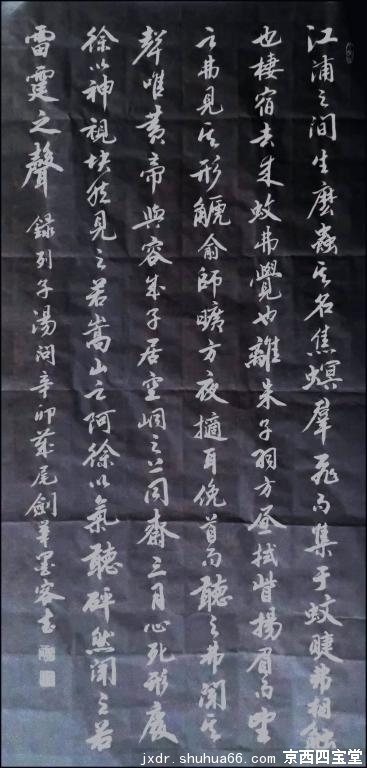 江浦之間生麽蟲其名焦螟羣飛而集于蚊睫弗相觸
也棲宿去來蚊弗覺也離朱子羽方晝拭眥揚眉而望
之弗見其形䚦俞師曠方夜擿耳俛首而聽之弗聞其
聲唯黄帝與容成子居空峒之上同齋三月心死形廢
徐以神視塊然見之若嵩山之阿徐以氣聽砰然聞之若
雷霆之聲 錄列子湯問辛卯歲尾劍 墨客書
京西四宝堂
jxdr.shuhua66.com